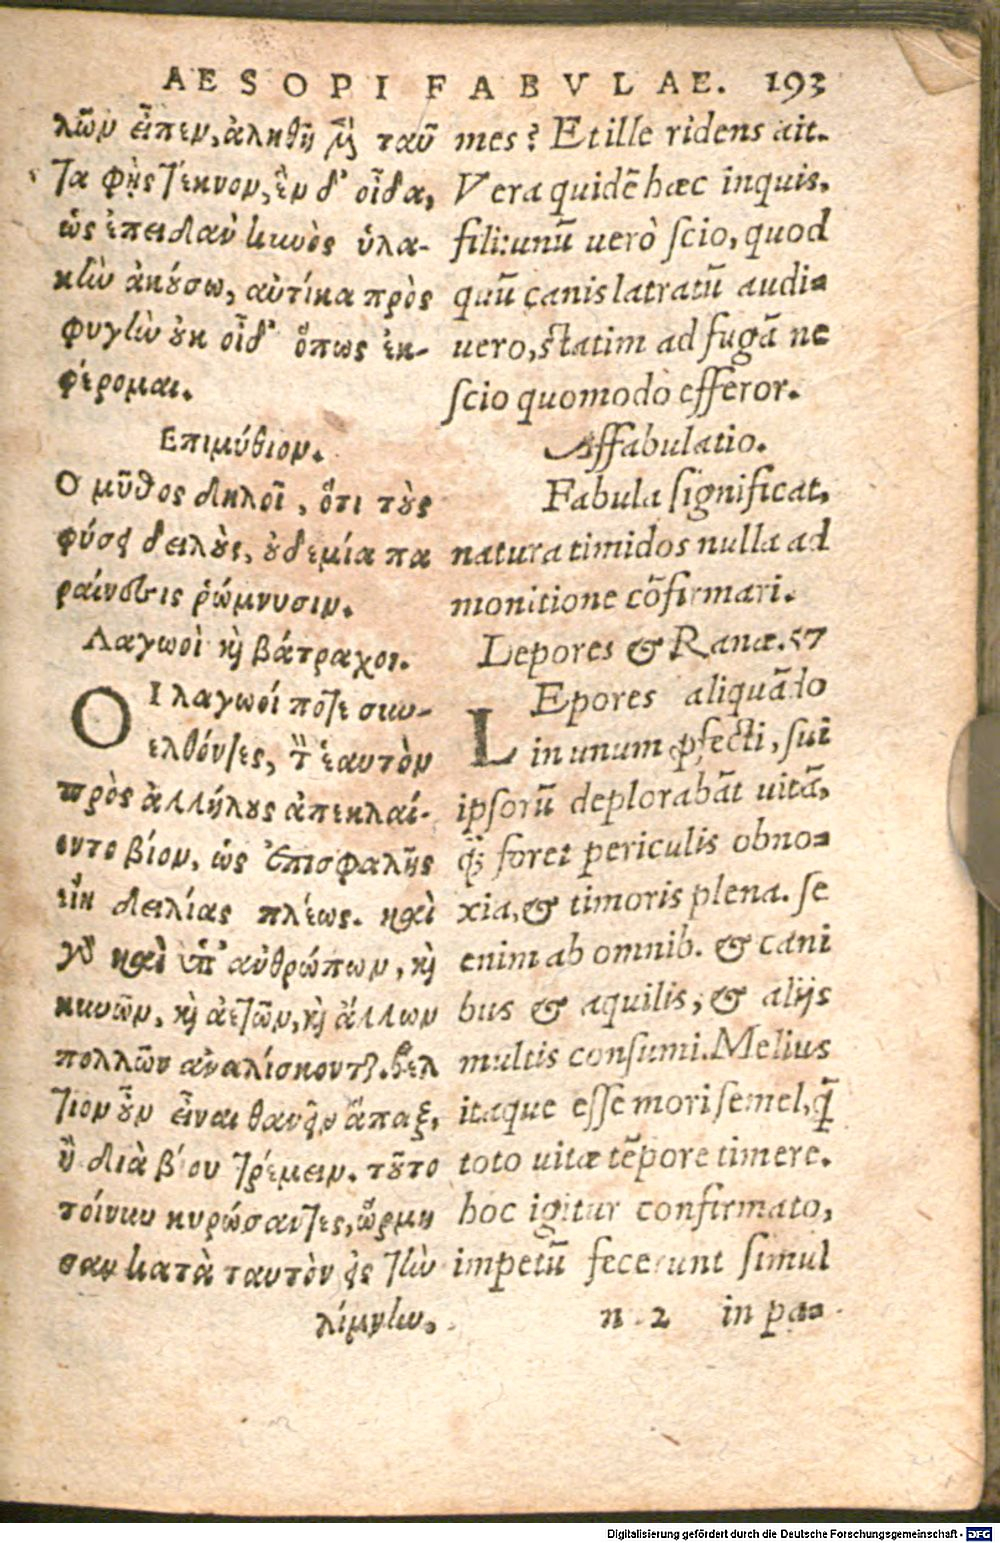 AESOPI FABVLAE. 193
λῶν εἶπεν, ἀληθῆ μὲν ταῦ
τα φῂς τέκνον, ἓν δ' οἶδα,
ὡς ἐπειδὰν κυνὸς ὑλα-
κὴν ἀκούσω, αὐτίκα πρὸς
φυγὴν οὐκ οἶδ' ὅπως ἐκ-
φέρομαι.
Επιμύθιον.
Ο μῦθος δηλοῖ, ὅτι τοὺς
φύσει δειλοὺς, οὐδεμία πα
ραίνεσις ῥώννυσιν.
Λαγωοὶ καὶ βάτραχοι.
ΟΙ λαγωοί ποτε συν-
ελθόντες, τὸν ἑαυτῶν
πρὸς ἀλλήλους ἀπεκλαί-
οντο βίον, ὡς ἐπισφαλὴς
εἴη δειλίας πλέως. καὶ
γὰρ καὶ ὑπ' ἀνθρώπων, καὶ
κυνῶν, καὶ ἀετῶν, καὶ ἄλλων
πολλῶν ἀναλίσκονται. βέλ
τιον οὖν εἶναι θανεῖν ἅπαξ,
ἢ διὰ βίου τρέμειν. τοῦτο
τοίνυν κυρώσαντες, ὥρμη
σαν κατὰ ταυτὸν εἰς τὴν
λίμνην,
mes? Et ille ridens ait.
Vera quidē hæc inquis,
fili: unū uerò scio, quod
quū canis latratū audi=
uero, statim ad fugā ne
scio quomodo efferor.
Affabulatio.
Fabula significat,
natura timidos nulla ad
monitione cōfirmari.
Lepores & Ranæ. 57
LEpores aliquādo
in unum ꝓfecti, sui
ipsorū deplorabāt uitā,
ꝙ foret periculis obno=
xia, & timoris plena. se
enim ab omnib. & cani
bus & aquilis, & alijs
multis consumi. Melius
itaque esse mori semel, q̄
toto uitæ tēpore timere.
hoc igitur confirmato,
impetū fecerunt simul
n 2 in pa=
Digitalisierung gefördert durch die Deutsche Forschungsgemeinschaft - DFG